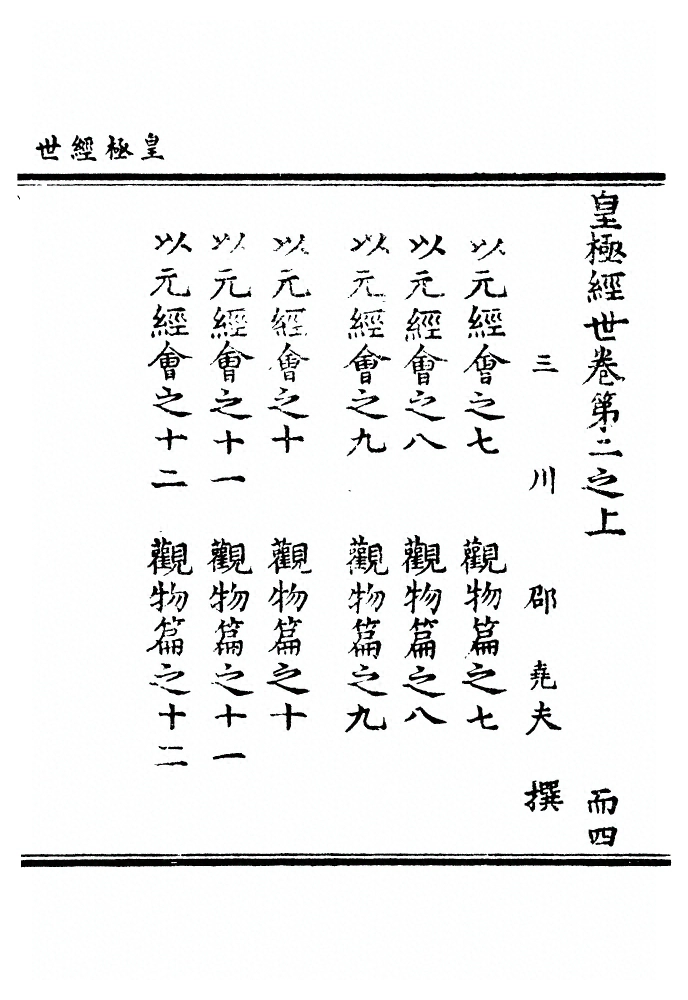 皇極經世
皇極經世卷第二之上 而四
三川 邵堯夫 撰
以元經會之七 觀物篇之七
以元經會之八 觀物篇之八
以元經會之九 觀物篇之九
以元經會之十 觀物篇之十
以元經會之十一 觀物篇之十一
以元經會之十二 觀物篇之十二